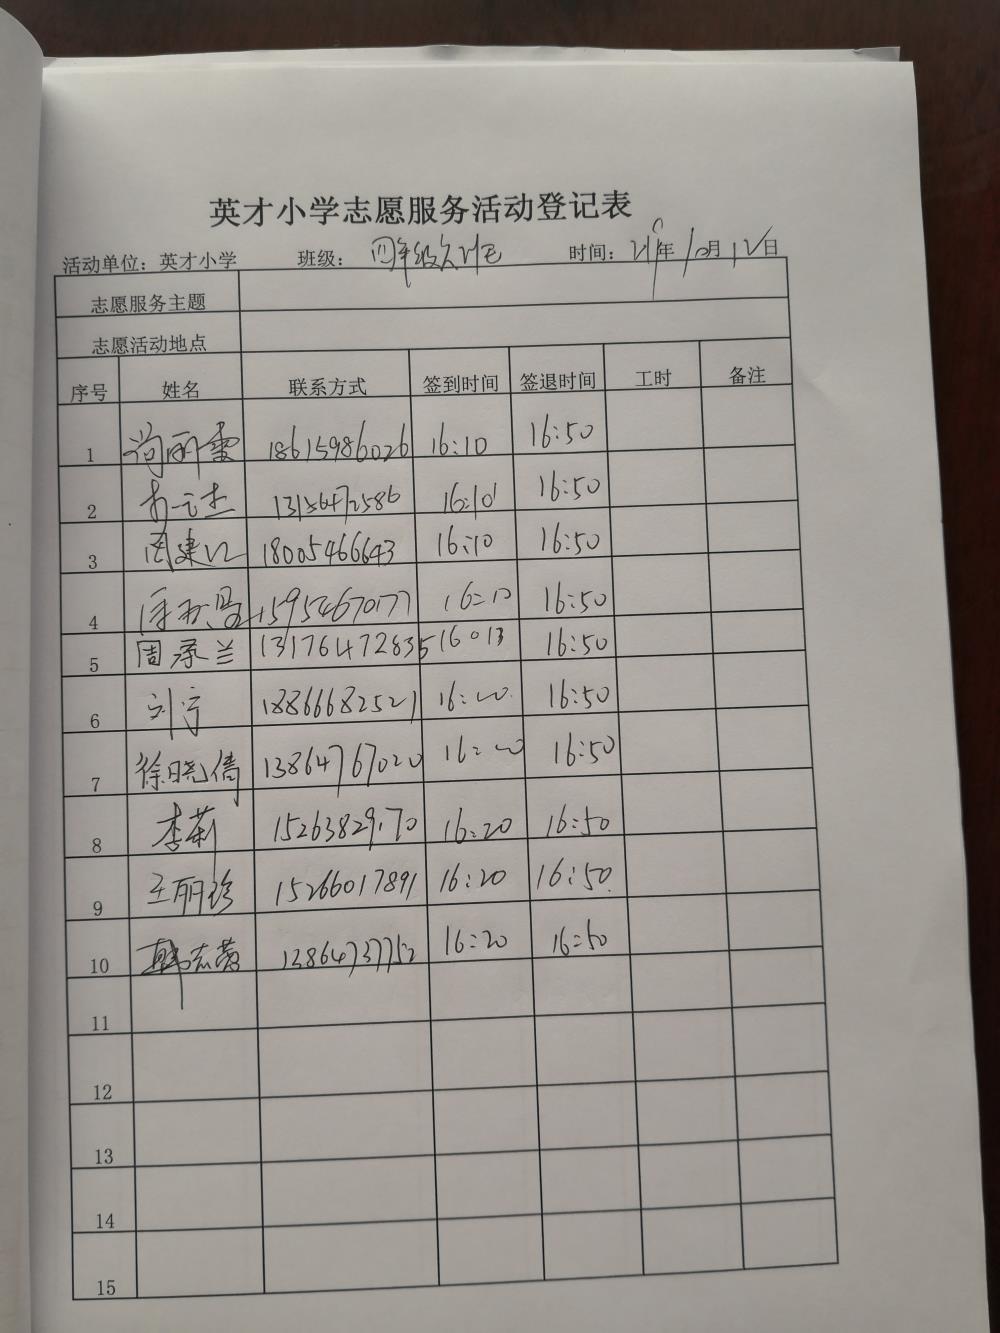 英才小学志愿服务活动登记表
活动单位：英才小学 班级：四年级 时间： 年10月12日
志愿服务主题
志愿活动地点
序号 姓名 联系方式 签到时间 签退时间 工时 备注
1 尚丽雪 18615986026 16:10 16:50
2 16:10 16:50
3 18005466643 16:10 16:50
4 15954670177 16:10 16:50
5 周承兰 13176472835 16:13 16:50
6 刘宁 18866682521 16:20 16:50
7 徐晓倩 13864767020 16:20 16:50
8 李莉 15263829170 16:20 16:50
9 王丽珍 15266017891 16:20 16:50
10 韩志蕾 13864737752 16:20 16:50
11
12
13
14
15